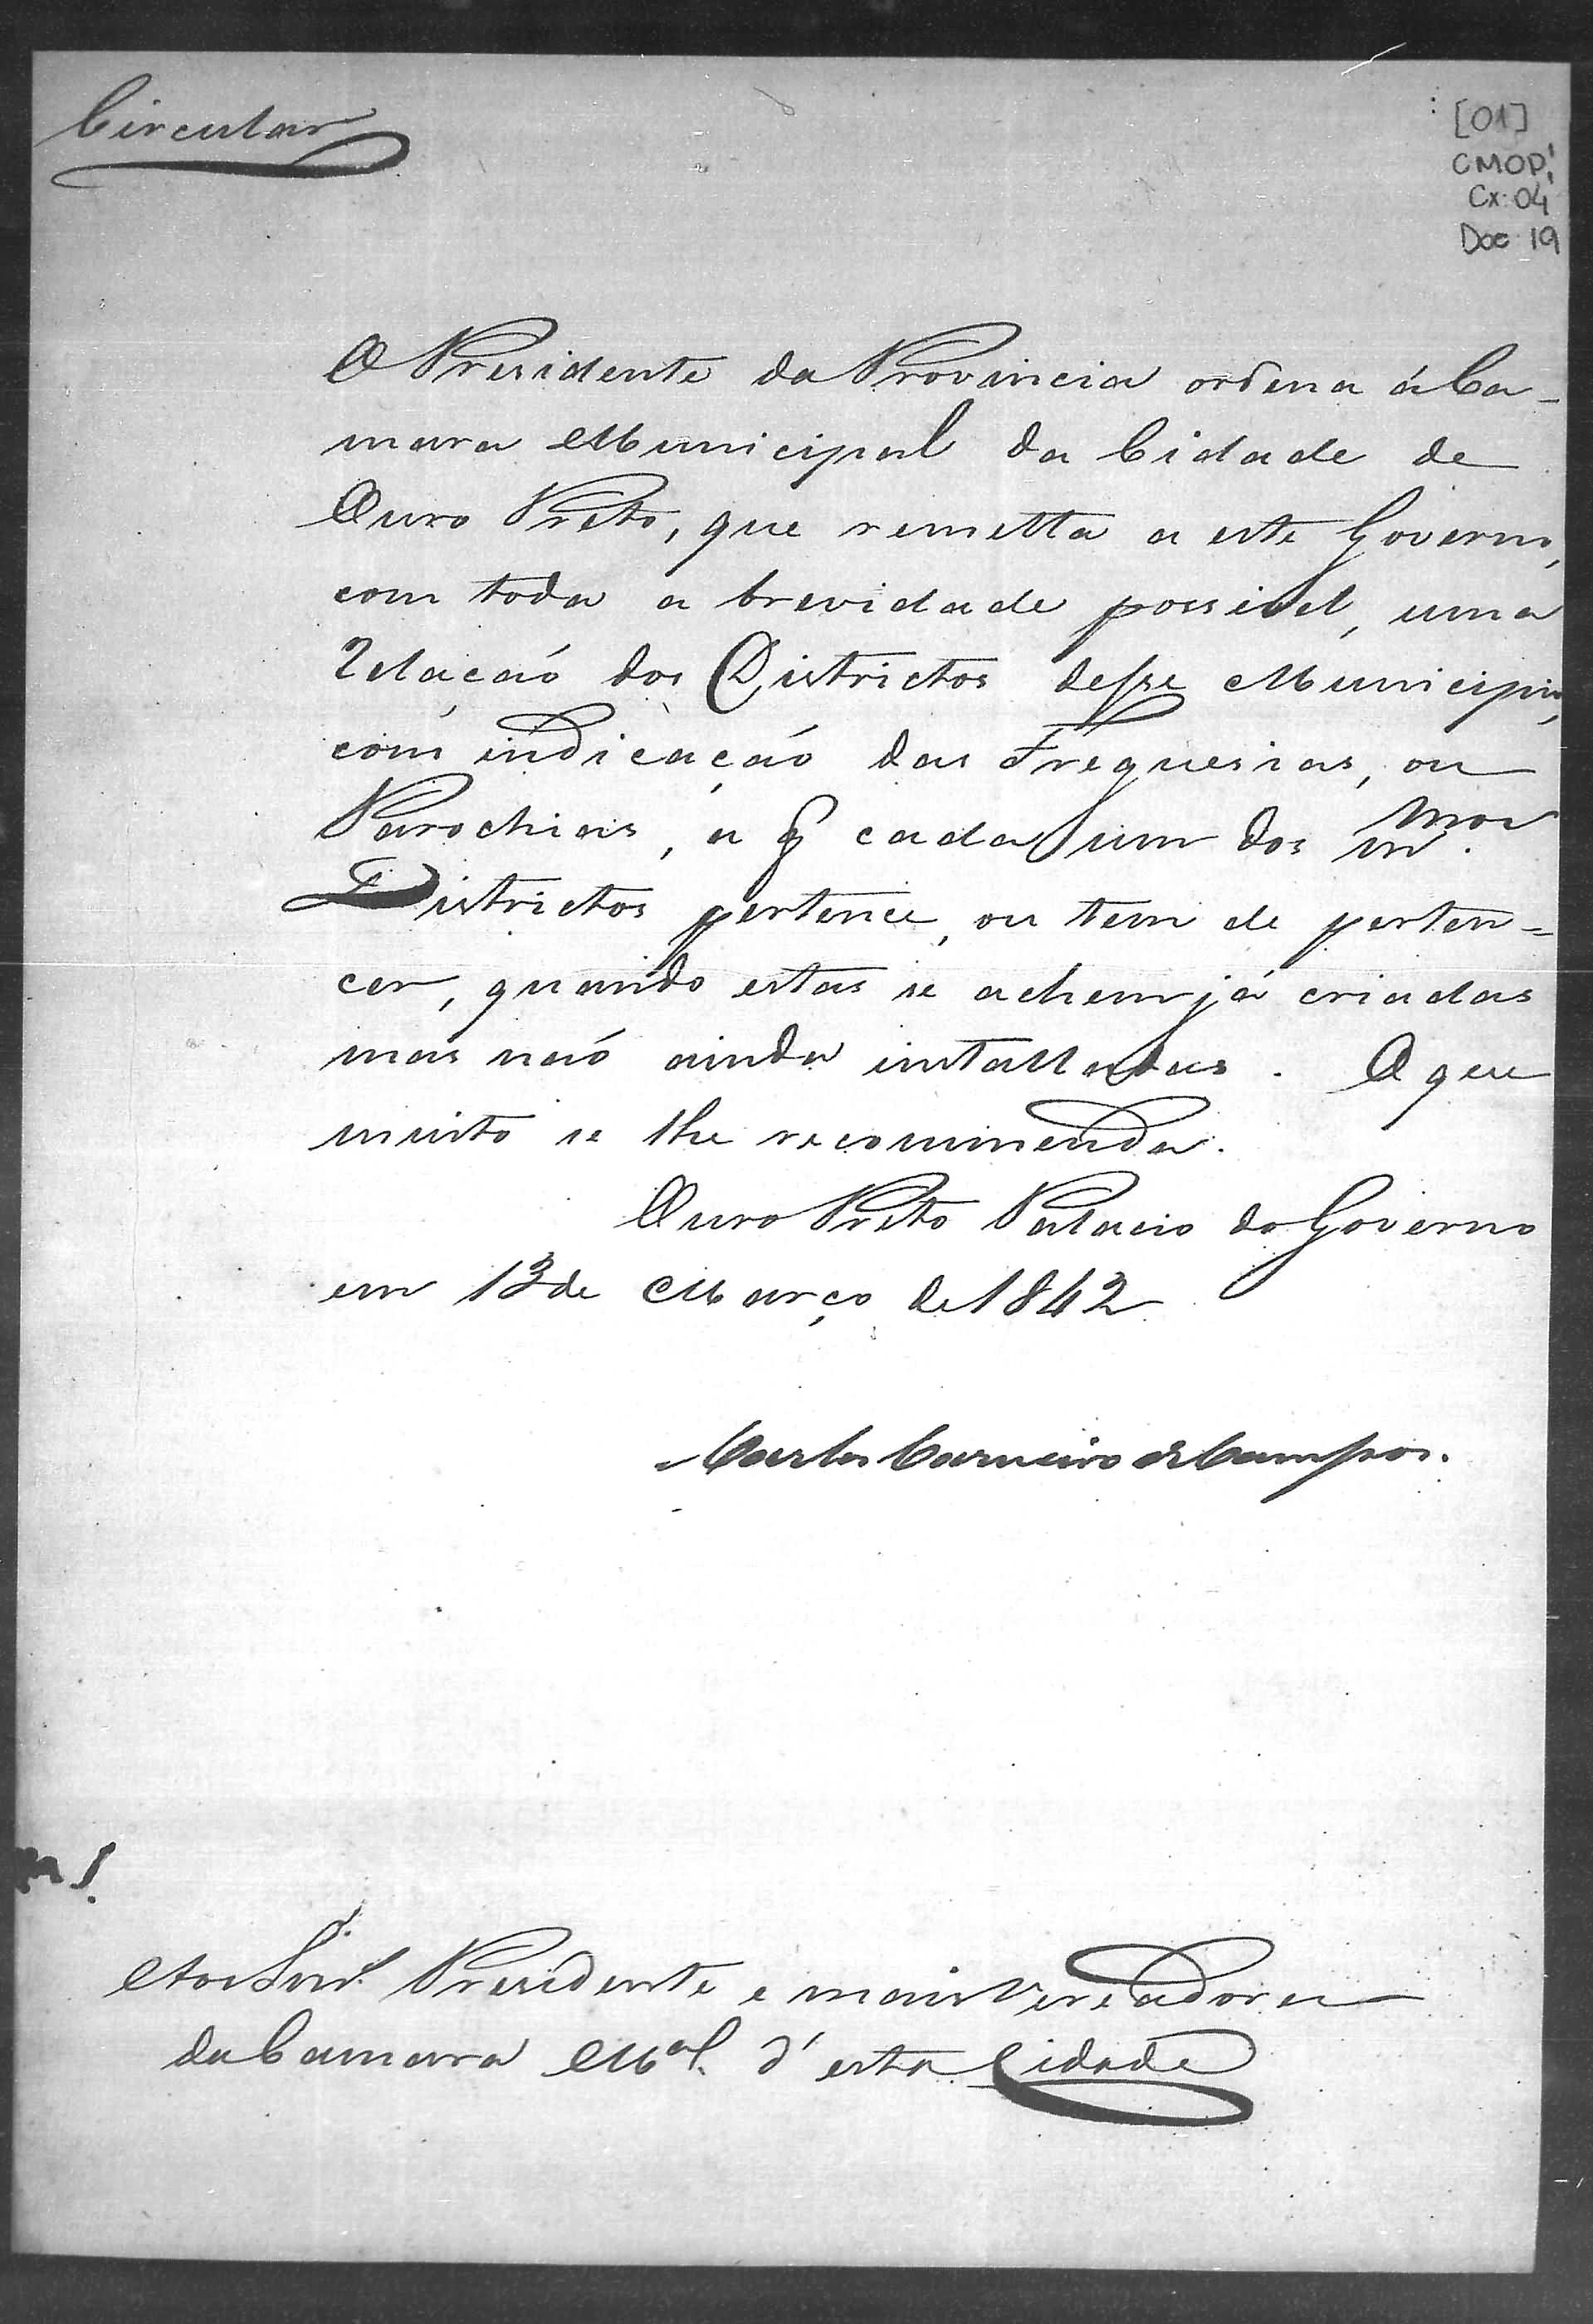 Circular
[01]
CMOP
Cx. 04
Doc 19
O Presidente da Provincia ordena á Ca-
mara Municipal da Cidade de
Ouro Preto, que remetta a este Governo,
com toda a brevidade possivel, uma
Relação dos Districtos desse Municipio,
com indicação das Freguesias, ou
Parochias, a q cada um dos mmos
Districtos pertence, ou tem de perten=
cer, quando estas se achem já criadas
mas não ainda installadas. O que
muito se lhe recommenda.
Ouro Preto Palacio do Governo
em 13 de Março de 1842
Carlos Carneiro de Campos.
Aos Snrs. Presidente e mais Vereadores
da Camara Mal. d'esta Cidade